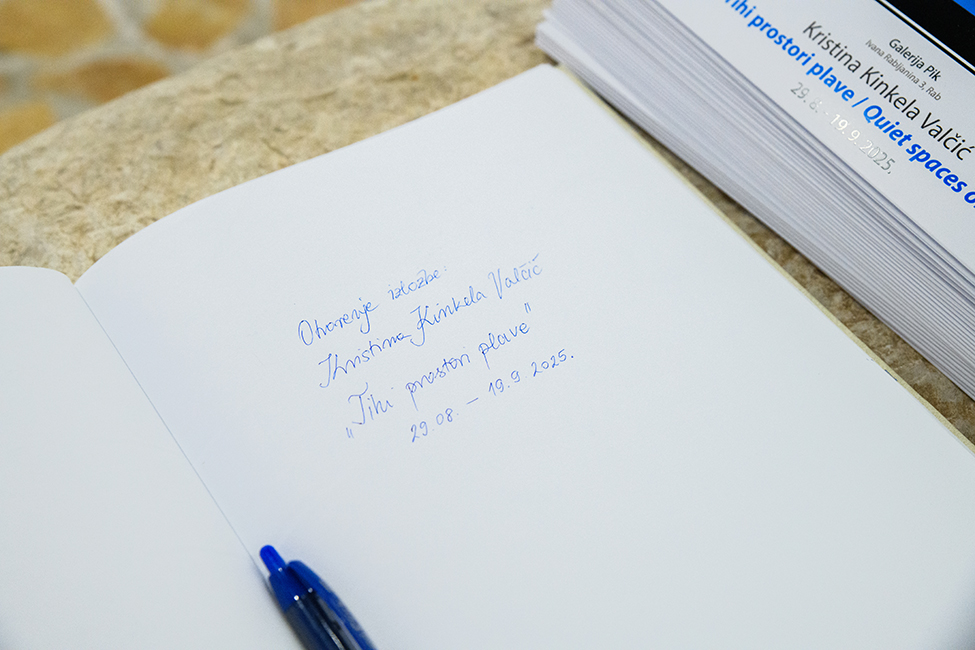 Otvorenje izložbe:
Kristina Kinkela Valčić
„Tihi prostori plave"
29.08. – 19.9 2025.
Galerija Pik
Ivana Rabljanina 3, Rab
Kristina Kinkela Valčić
Tihi prostori plave / Quiet spaces
29. 8. - 19. 9. 2025.